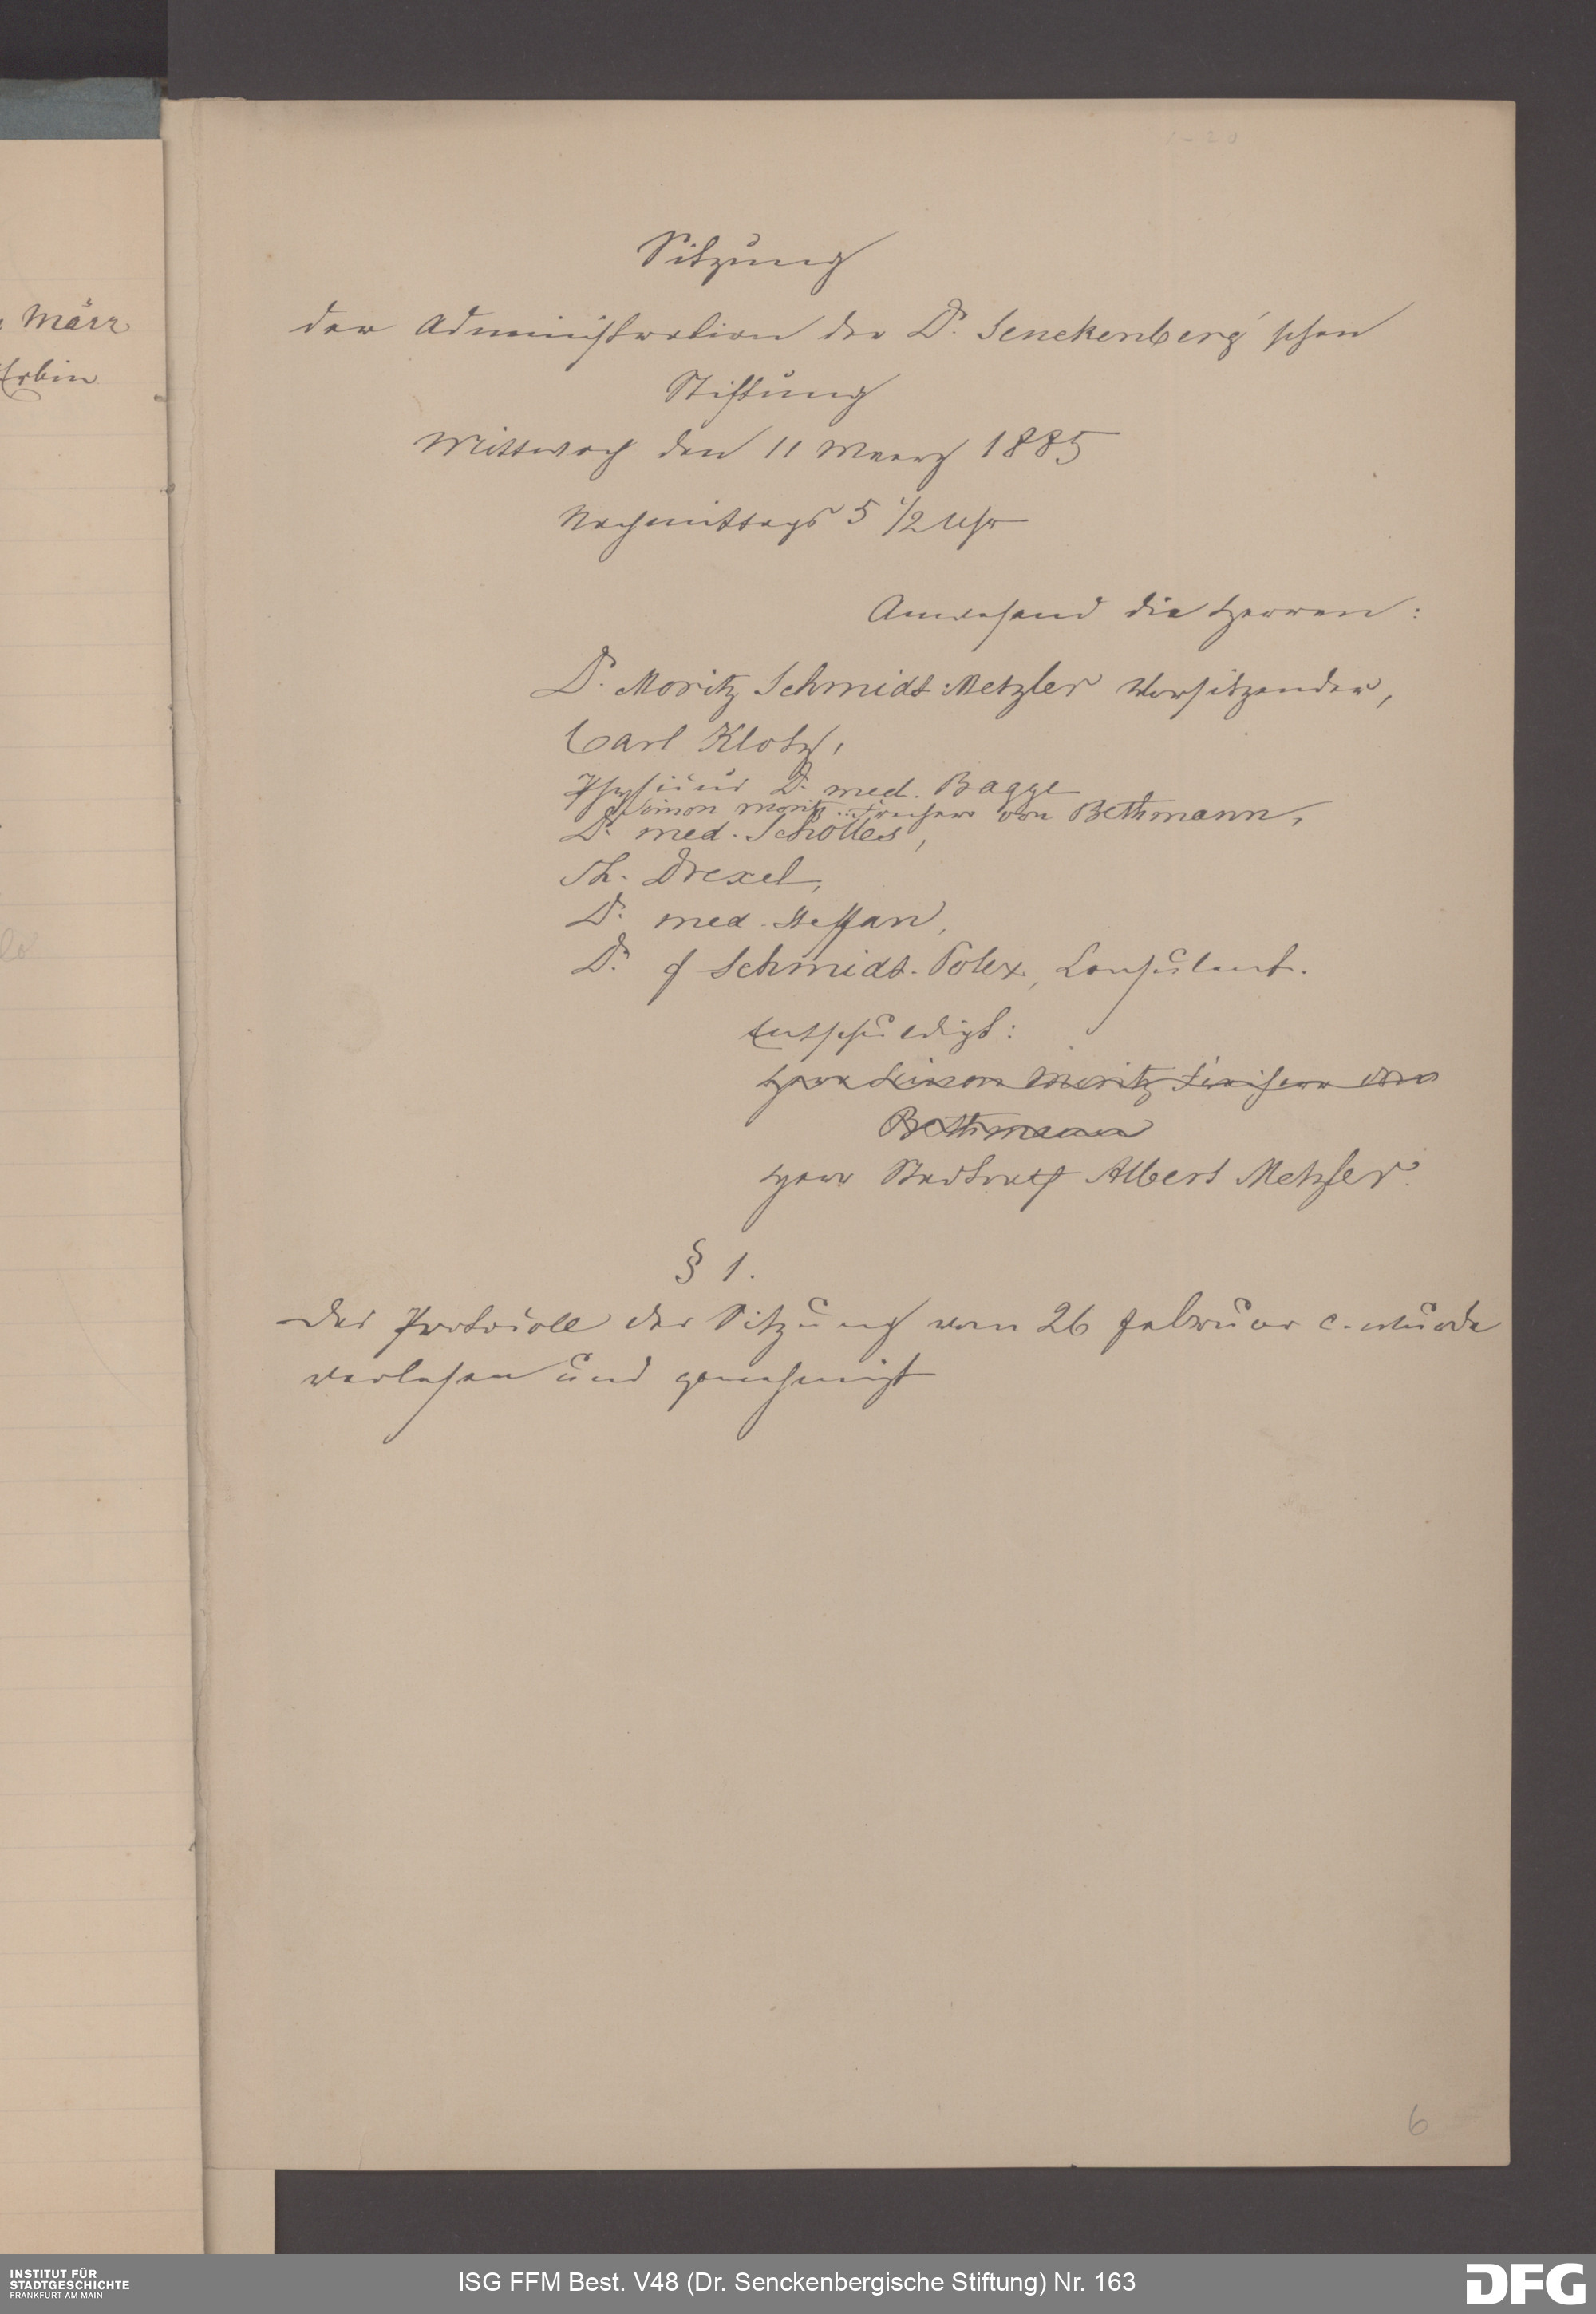 März
Erbin
Sitzung
der Administration der Dr. Senckenberg'schen
Stiftung
Mittwoch den 11 Maerz 1885
Nachmittags 5 1/2 Uhr
Anwesend die Herren:
Dr. Moritz Schmidt-Metzler Vorsitzender,
Carl Klotz,
Physicus Dr. med. Bagge
Simon Moritz Freiherr von Bethmann,
Dr. med. Schölles,
Th. Drexel,
Dr. med. Steffan,
Dr. jur Schmidt-Polex, Consulent.
Entschuldigt:
Herr Simon Moritz Freiherr von
Bethmann
Herr Stadtrath Albert Metzler.
§ 1.
Das Protocoll der Sitzung vom 26 Februar c. wurde
verlesen und genehmigt
6
INSTITUT FÜR
STADTGESCHICHTE
FRANKFURT AM MAIN
ISG FFM Best. V48 (Dr. Senckenbergische Stiftung) Nr. 163
DFG